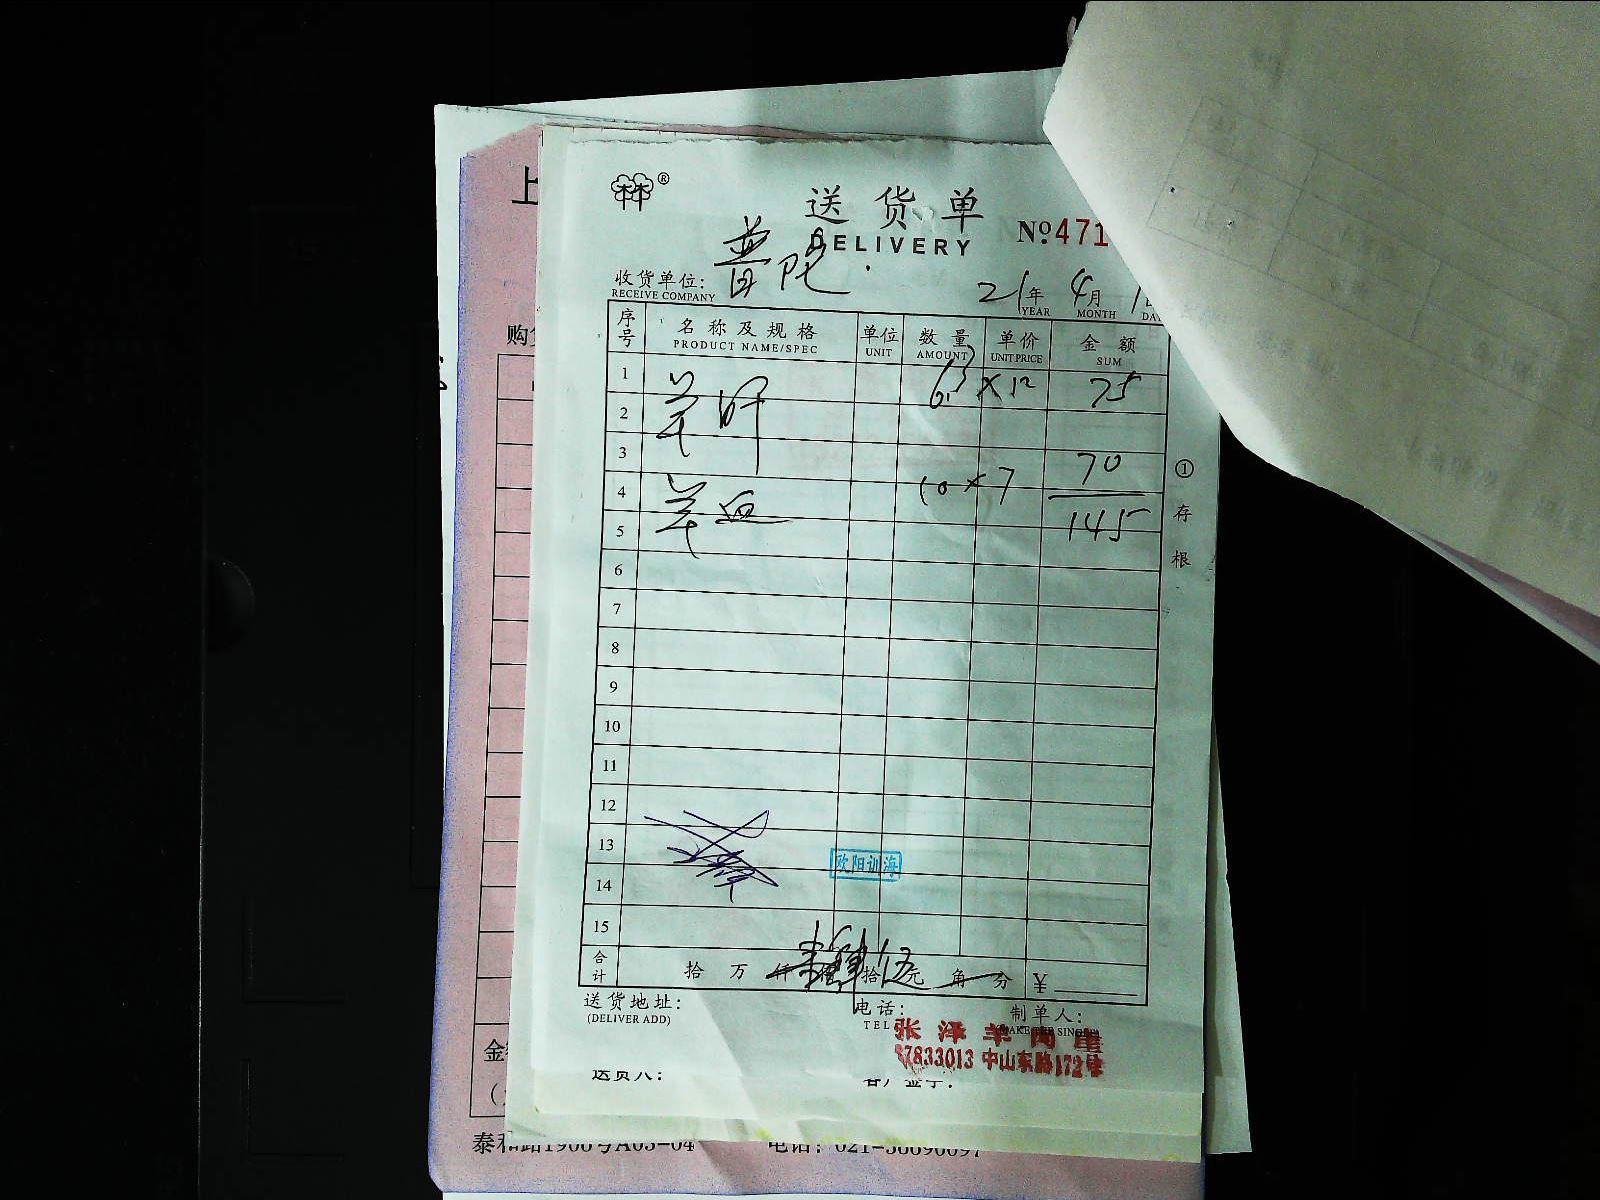 上
林 ®
送货单
DELIVERY
№471
收货单位: 普陀
RECEIVE COMPANY
21年 4月 1日
YEAR MONTH DA
购
序号 名称及规格 单位 数量 单价 金额
PRODUCT NAME/SPEC UNIT AMOUNT UNIT PRICE SUM
1 羊肝 6.3 ×12 75
2
3 70
4 羊血 10 × 7
5 145
6
7
8
9
10
11
12
13 欧阳训海
14
15
合计 拾 万 仟 佰 拾 伍元 角 分 ¥
①存根
送货地址: 电话: 制单人:
(DELIVER ADD) TEL
张泽羊肉星
57833013 中山东路172号
送货人: 客户签字:
金
泰和路1900号A03-04 电话: 021-56690097